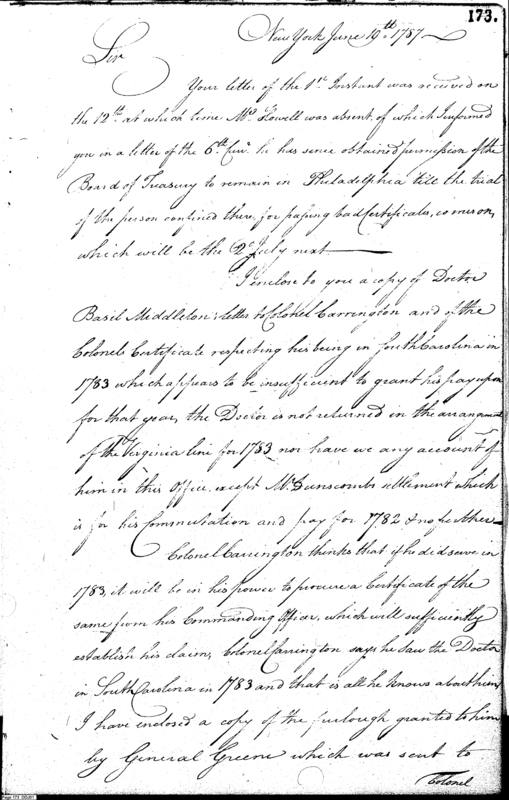 173.
New York June 19th 1787
Sir
Your letter of the 1st Instant was received on
the 12th at which time Mr Howell was absent, of which I informed
you in a letter of the 6th Curt. he has since obtained permission of the
Board of Treasury to remain in Philadelphia till the trial
of the person confined there for passing bad Certificates, comes on,
which will be the 2d July next
I inclose to you a copy of Doctor
Basil Middleton's letter to Colonel Carrington and of the
Colonels Certificate respecting his being in South Carolina in
1783 which appears to be insufficient to grant his pay upon
for that year, the Doctor is not returned in the arrangement
of the Virginia line for 1783 nor have we any account of
him in this Office, except Mr Dunscombs settlement which
is for his Commutation and pay for 1782 & no further
Colonel Carrington thinks that if he did serve in
1783, it will be in his power to procure a Certificate of the
same from his Commanding Officer, which will sufficiently
establish his claim, Colonel Carrington says he saw the Doctor
in South Carolina in 1783 and that is all he knows about him
I have enclosed a copy of the furlough granted to him
by General Greene which was sent to
Colonel